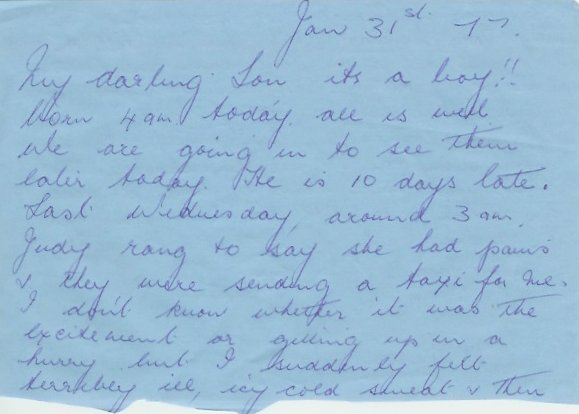 Jan 31st. 77.
My darling Son its a boy!!
born 4 am today. all is well.
We are going in to see them
later today. He is 10 days late.
Last Wednesday, around 3 am,
Judy rang to say she had pains
& they were sending a taxi for me.
I don't know whether it was the
excitement or getting up in a
hurry but I suddenly felt
terribley ill, icy cold sweat & then